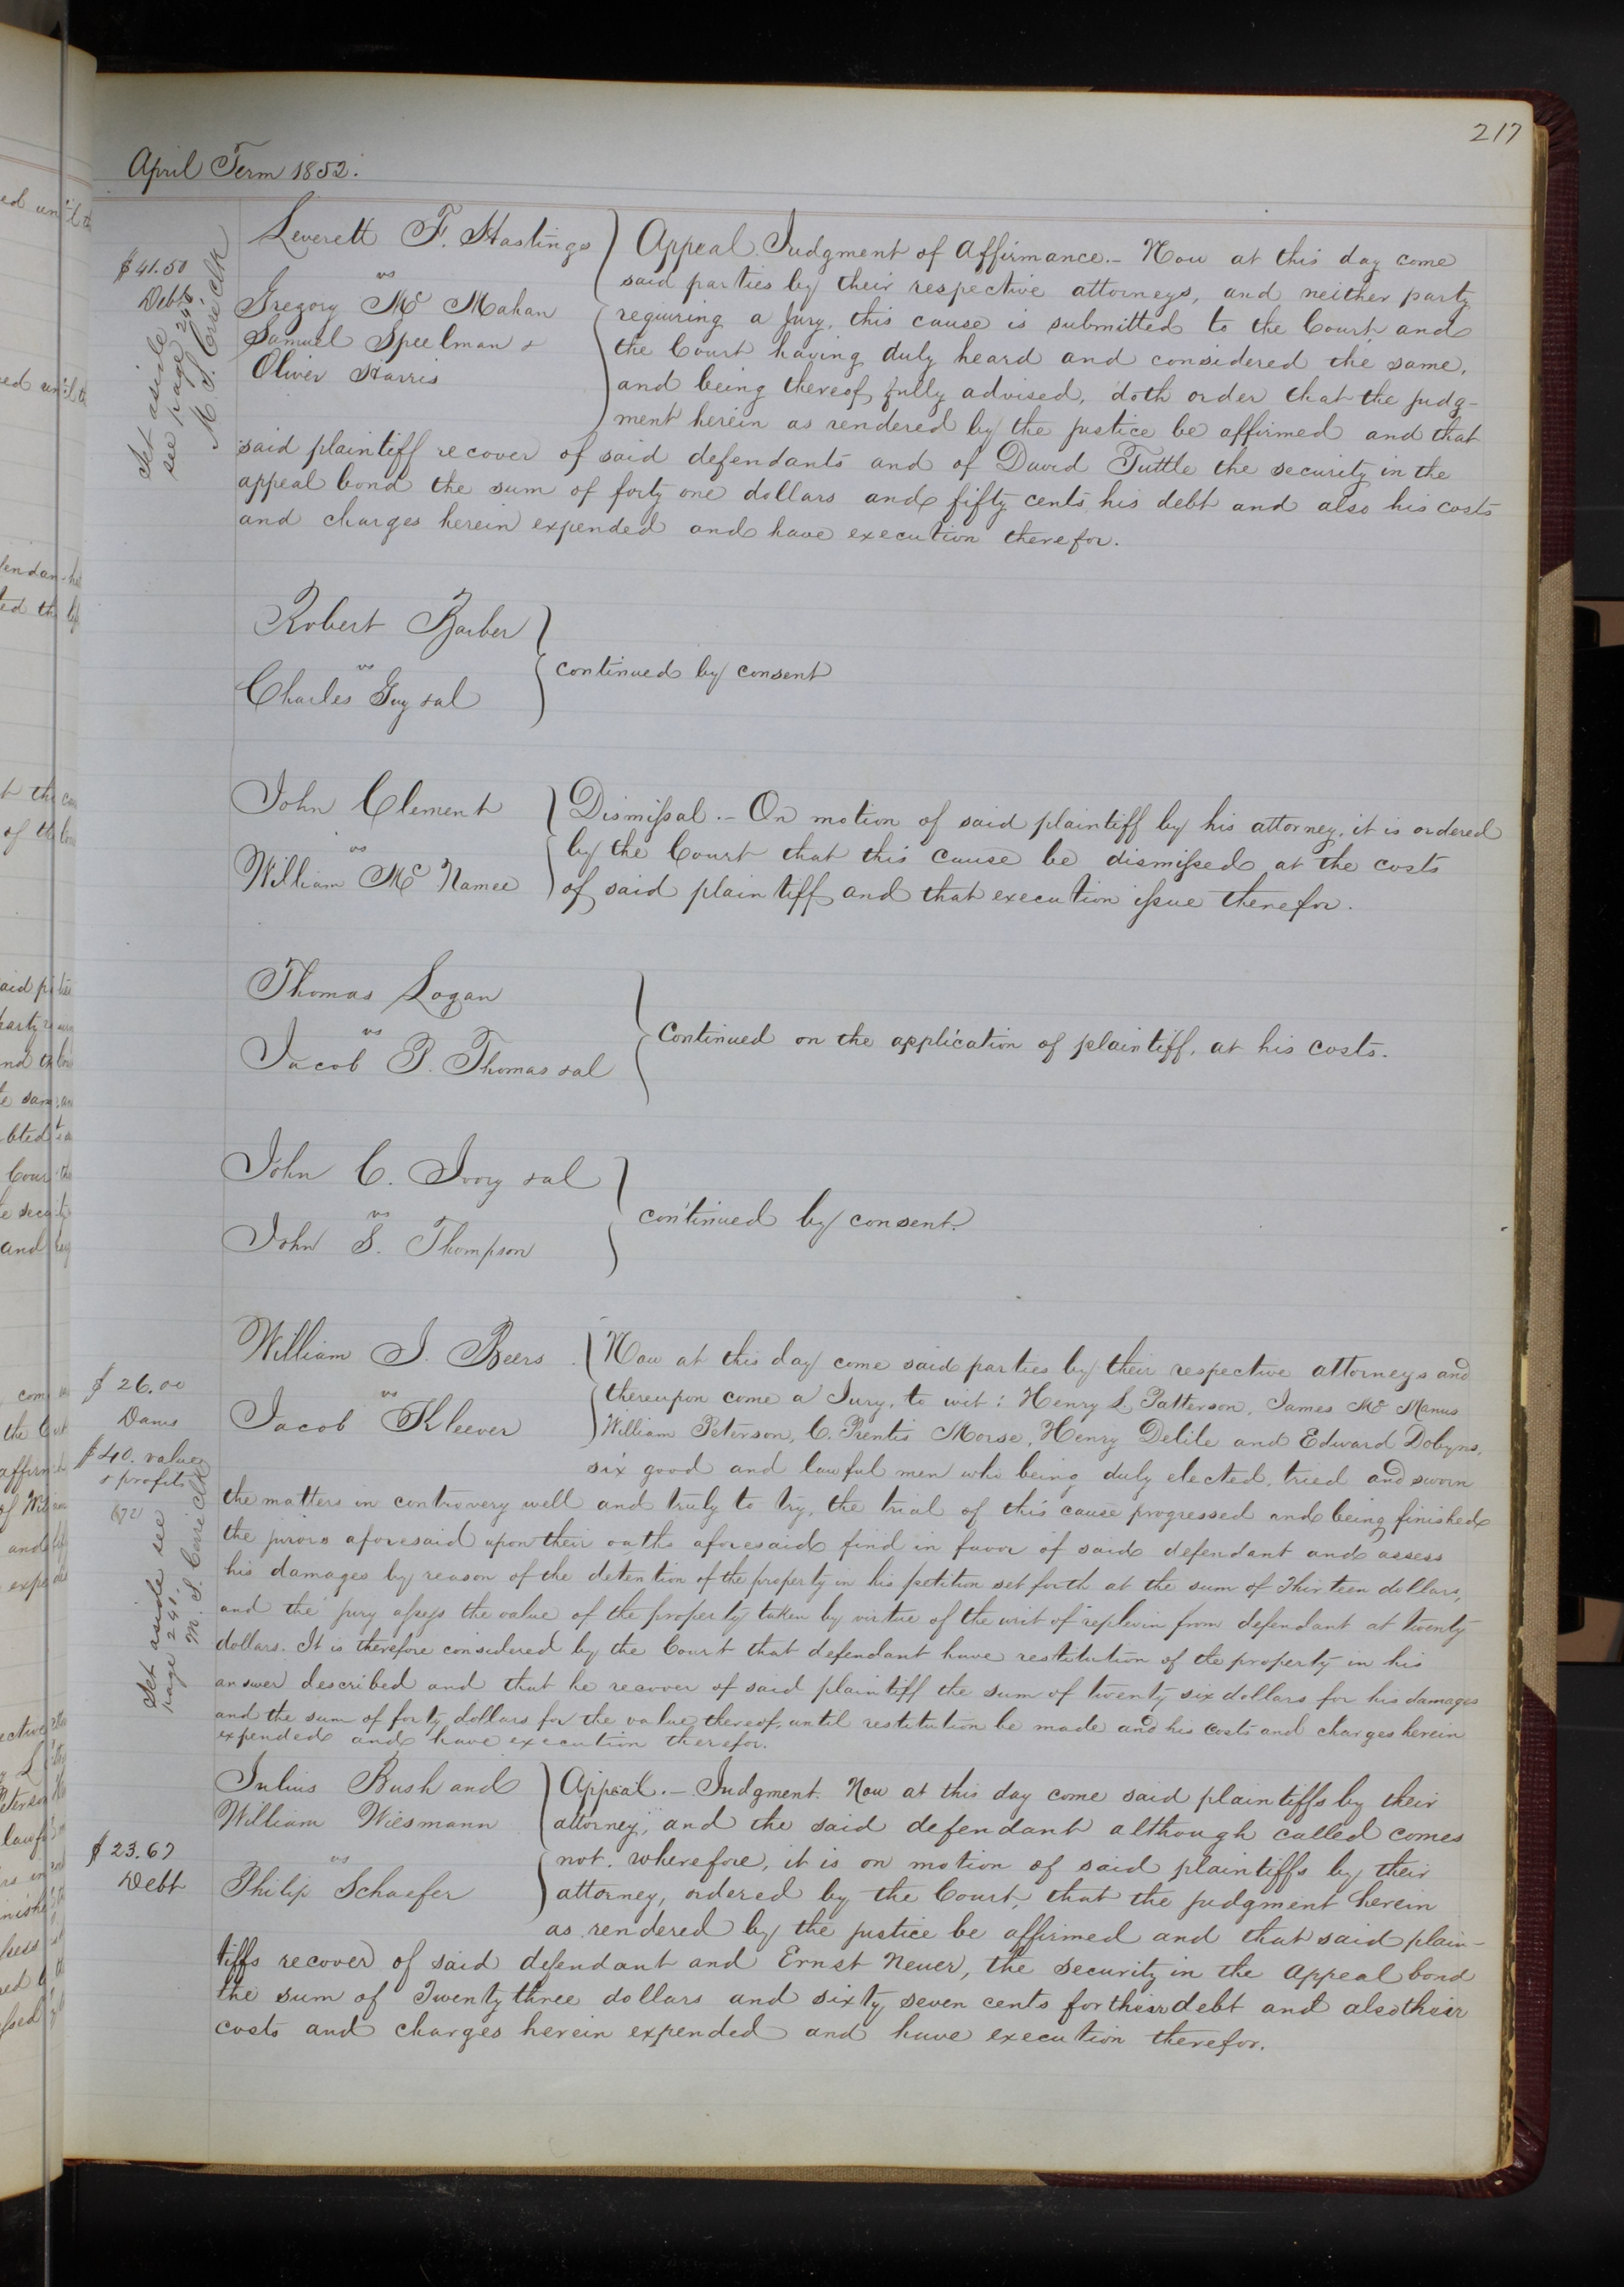 217
April Term 1852.
Leverett F. Hastings
vs
Gregory Mc Mahan
Samuel Speelman &
Oliver Harris
$41.50
Debt
Set aside
see page 245
M. S. Cerré Clk
Appeal. Judgment of Affirmance.- Now at this day come
said parties by their respective attorneys, and neither party
requiring a Jury, this cause is submitted to the Court and
the Court having duly heard and considered the same,
and being thereof fully advised, doth order that the judg-
ment herein as rendered by the justice be affirmed and that
said plaintiff recover of said defendants and of David Tuttle the security in the
appeal bond the sum of forty one dollars and fifty cents, his debt and also his costs
and charges herein expended and have execution therefor.
Robert Barber
vs
Charles Guy & al
continued by consent
John Clement
vs
William Mc Namee
Dismissal.- On motion of said plaintiff by his attorney, it is ordered
by the Court that this cause be dismissed at the costs
of said plaintiff and that execution issue therefor.
Thomas Logan
vs
Jacob P. Thomas & al
Continued on the application of plaintiff, at his costs.
John C. Ivory & al
vs
John S. Thompson
continued by consent.
William J. Beers
vs
Jacob Kleever
$26.00
Dams
$40. value
& profits
(72)
Set aside see
page 241.
M. S. Cerré Clk
Now at this day come said parties by their respective attorneys and
thereupon come a Jury, to wit: Henry L. Patterson, James Mc Manus
William Peterson, C. Prentis Morse, Henry Delile and Edward Dobyns,
six good and lawful men who being duly elected, tried and sworn
the matters in controvery well and truly to try, the trial of this cause progressed and being finished
the jurors aforesaid upon their oaths aforesaid find in favor of said defendant and assess
his damages by reason of the detention of the property in his petition set forth at the sum of Thirteen dollars,
and the jury assess the value of the property taken by virtue of the writ of replevin from defendant at twenty
dollars. It is therefore considered by the Court that defendant have restitution of the property in his
answer described and that he recover of said plaintiff the sum of twenty six dollars for his damages
and the sum of forty dollars for the value thereof, until restitution be made and his costs and charges herein
expended and have execution therefor.
Julius Bush and
William Wiesmann
vs
Philip Schaefer
$23.67
Debt
Appeal.- Judgment. Now at this day come said plaintiffs by their
attorney, and the said defendant although called comes
not. wherefore, it is on motion of said plaintiffs by their
attorney, ordered by the Court, that the judgment herein
as rendered by the justice be affirmed and that said plain-
tiffs recover of said defendant and Ernst Neuer, the security in the appeal bond
the sum of Twenty three dollars and sixty seven cents for their debt and also their
costs and charges herein expended and have execution therefor.